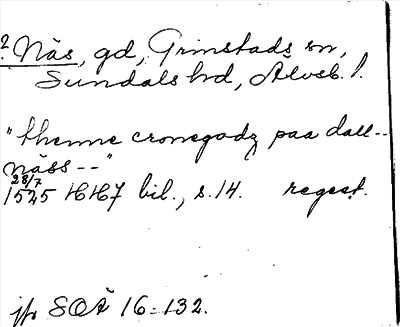 ? Näs, gd, Grinstads sn,
Sundals hd, Älvsb. l.
"thenne cronegardz paa dall--
näss --"
28/7
1525 HH7 bil., s. 14. regest.
jfr SOÄ 16:132.